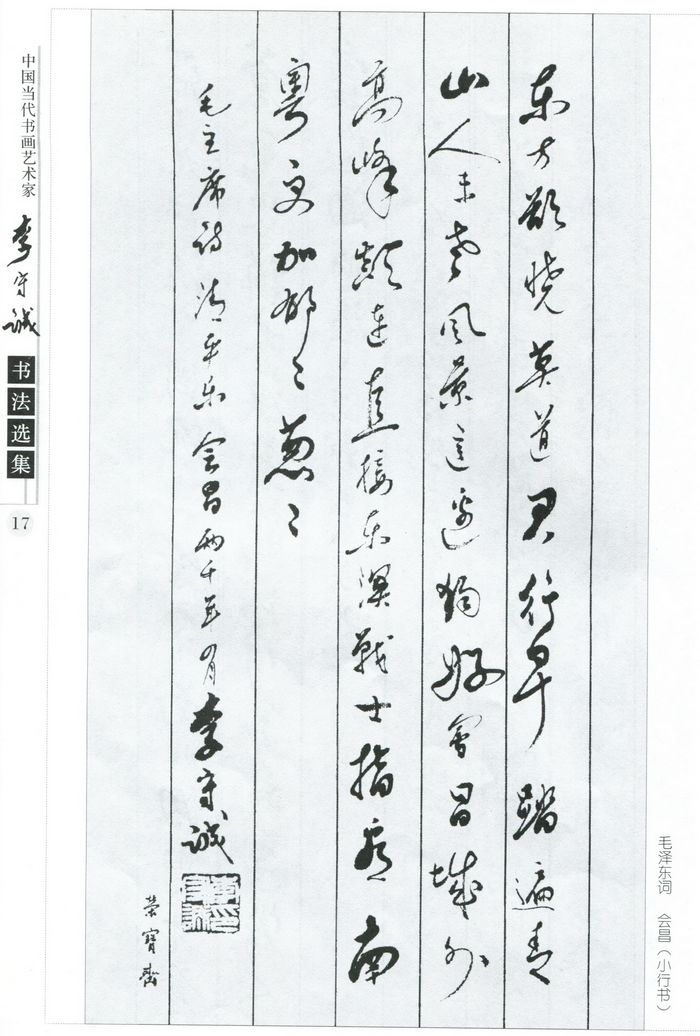 东方欲晓莫道君行早踏遍青
山人未老风景这边独好会昌城外
高峰颠连直接东溟战士指看南
粤更加郁〻葱〻
毛主席诗清平乐会昌两千年四月李守诚
荣寶齋
中国当代书画艺术家
李守诚
书法选集
17
毛泽东词 会昌（小行书）